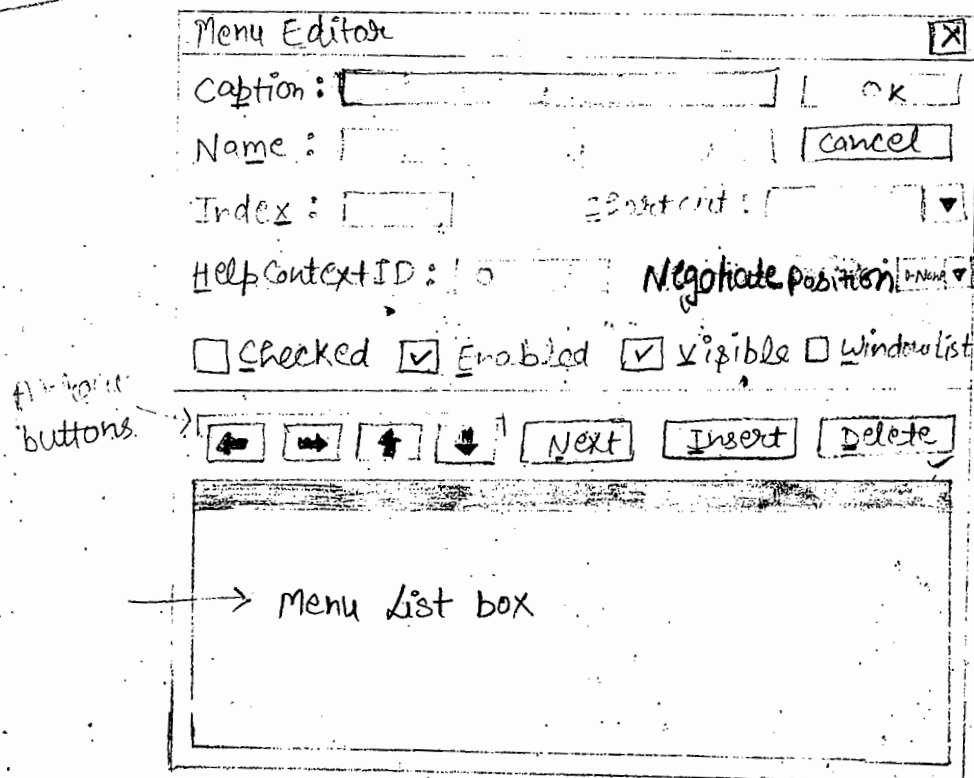 Menu Editor X
Caption : OK
Name : Cancel
Index : Shortcut :
HelpContextID : 0 Negotiate Position 0-None
Checked Enabled Visible WindowList
buttons.
Next Insert Delete
Menu List box